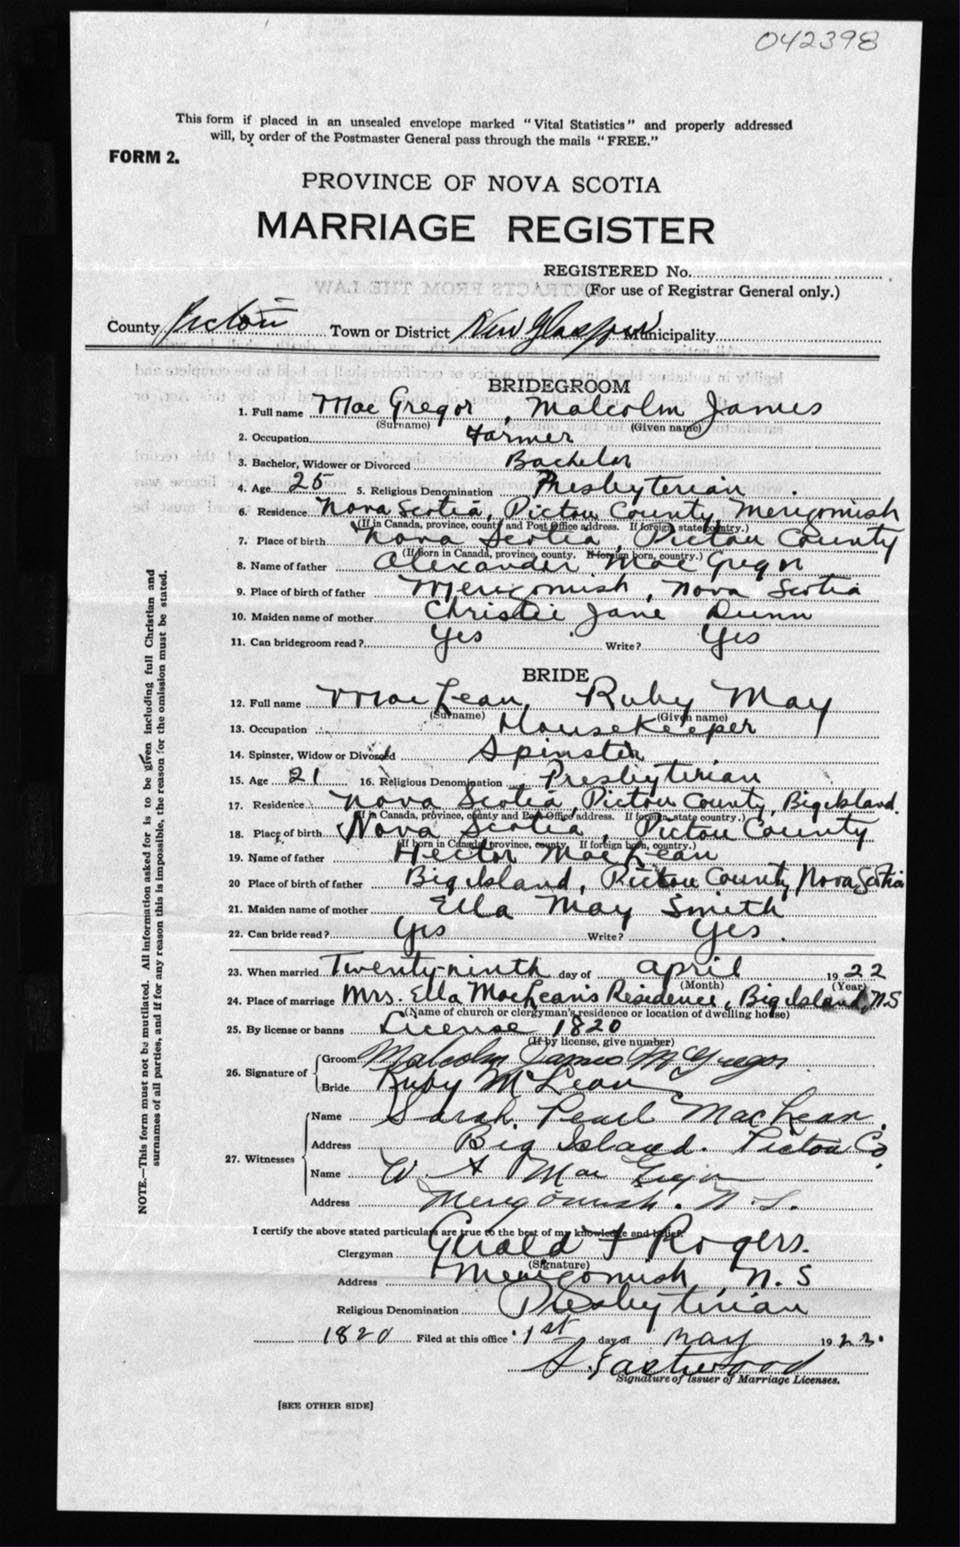 042398
This form if placed in an unsealed envelope marked "Vital Statistics" and properly addressed
will, by order of the Postmaster General pass through the mails "FREE."
FORM 2.
PROVINCE OF NOVA SCOTIA
MARRIAGE REGISTER
REGISTERED No.
(For use of Registrar General only.)
County Pictou Town or District New Glasgow Municipality
BRIDEGROOM
1. Full name MacGregor, Malcolm James
(Surname) (Given name)
2. Occupation Farmer
3. Bachelor, Widower or Divorced Bachelor
4. Age 25 5. Religious Denomination Presbyterian
6. Residence Nova Scotia, Pictou County, Merigomish
(If in Canada, province, county and Post Office address. If foreign state country.)
7. Place of birth Nova Scotia, Pictou County
(If born in Canada, province, county. If foreign born, country.)
8. Name of father Alexander MacGregor
9. Place of birth of father Merigomish, Nova Scotia
10. Maiden name of mother Christie Jane Dunn
11. Can bridegroom read? Yes Write? Yes
BRIDE
12. Full name MacLean, Ruby May
(Surname) (Given name)
13. Occupation Housekeeper
14. Spinster, Widow or Divorced Spinster
15. Age 21 16. Religious Denomination Presbyterian
17. Residence Nova Scotia, Pictou County, Big Island
(If in Canada, province, county and Post Office address. If foreign, state country.)
18. Place of birth Nova Scotia, Pictou County
(If born in Canada, province, county. If foreign born, country.)
19. Name of father Hector MacLean
20 Place of birth of father Big Island, Pictou County, Nova Scotia
21. Maiden name of mother Ella May Smith
22. Can bride read? Yes Write? Yes.
23. When married Twenty-ninth day of April 1922
(Month) (Year)
24. Place of marriage Mrs. Ella MacLean's Residence, Big Island, N.S
(Name of church or clergyman's residence or location of dwelling house)
25. By license or banns License 1820
(If by license, give number)
26. Signature of Groom Malcolm James McGregor
Bride Ruby McLean
27. Witnesses Name Sarah Pearl MacLean
Address Big Island. Pictou Co.
Name W A MacGregor
Address Merigomish. N.S.
I certify the above stated particulars are true to the best of my knowledge and belief.
Clergyman Gerald F Rogers.
(Signature)
Address Merigomish, N.S
Religious Denomination Presbyterian
1820 Filed at this office 1st day of May 1922.
A Eastwood
Signature of Issuer of Marriage Licenses.
[SEE OTHER SIDE]
NOTE.—This form must not be mutilated. All information asked for is to be given including full Christian and
surnames of all parties, and if for any reason this is impossible, the reason for the omission must be stated.